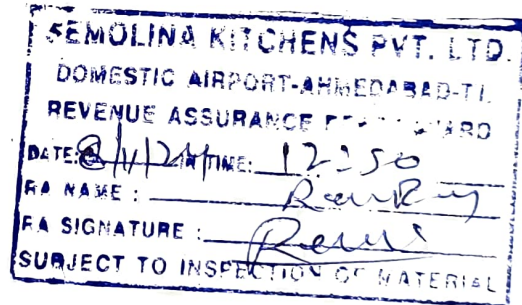 SEMOLINA KITCHENS PVT. LTD.
DOMESTIC AIRPORT-AHMEDABAD-T1
REVENUE ASSURANCE
DATE: 8/11/24 IN TIME: 12:50
RA NAME :
RA SIGNATURE :
SUBJECT TO INSPECTION OF MATERIAL